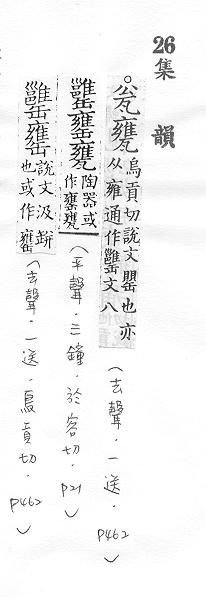 26集韻
○瓮甕烏貢切說文罌也亦
从雍通作罋文八
(去聲．一送．p462)
罋甕陶器或
作
(平聲．三鐘．於容切．p21)
罋說文汲缾
也或作
(去聲．一送．烏貢切．p462)